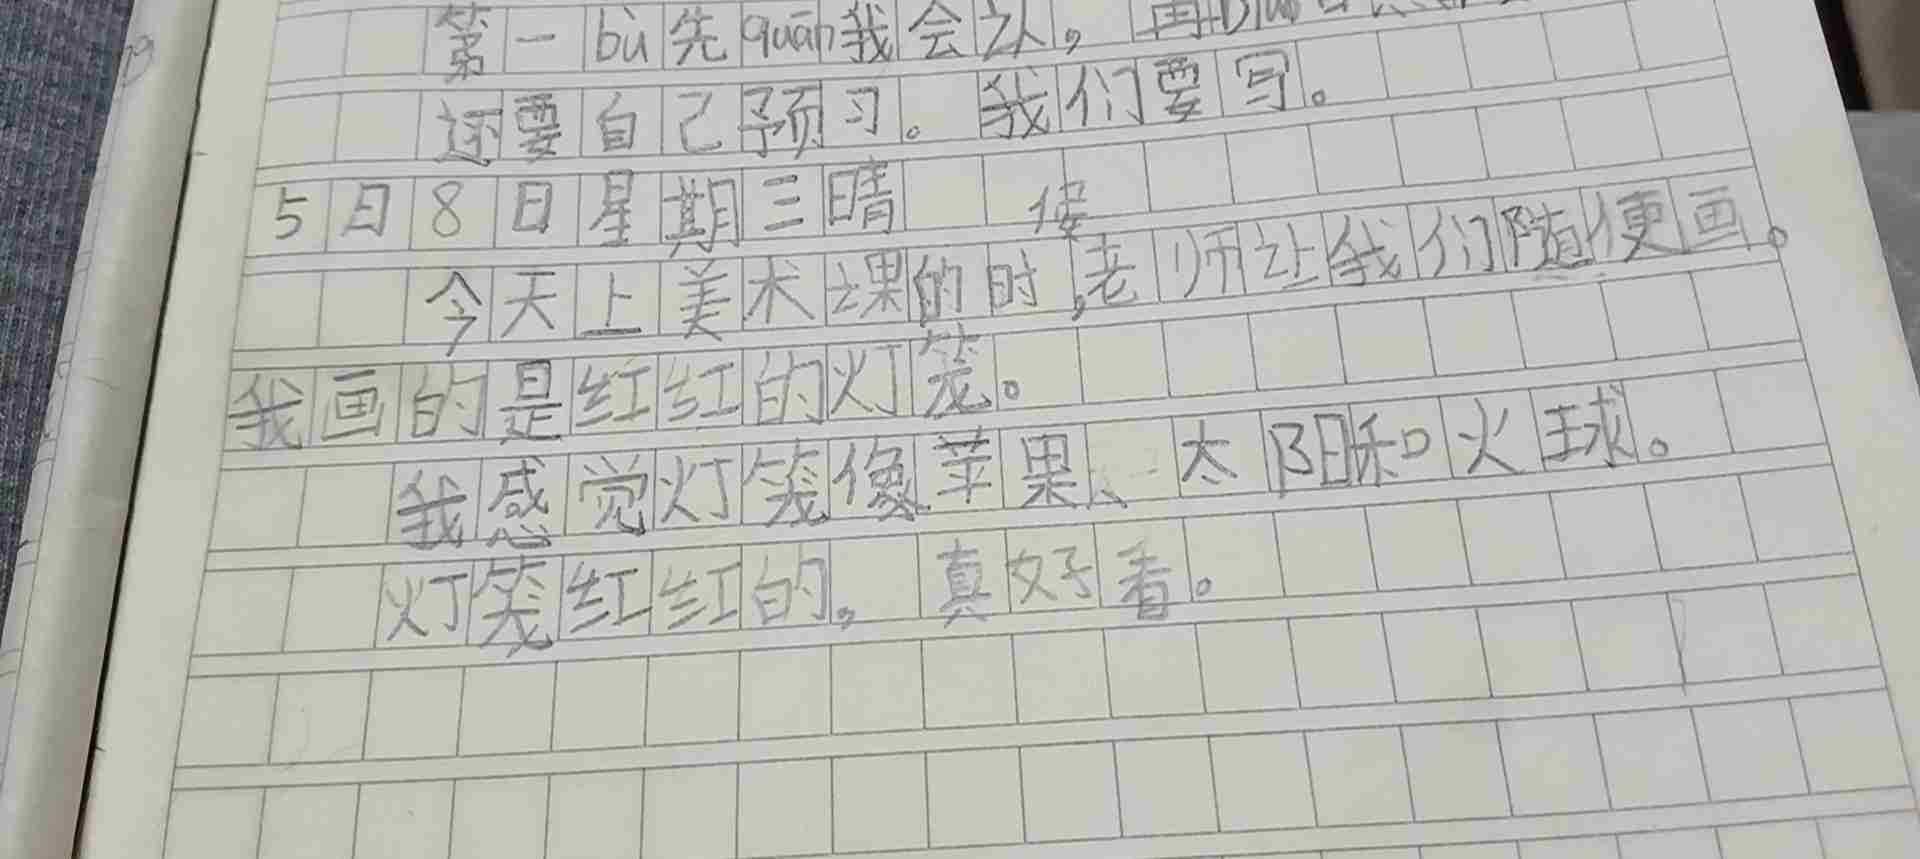 第一bù先quān我会认，再
还要自己预习。我们要写。
5日8日星期三晴
候
今天上美术课的时,老师让我们随便画。
我画的是红红的灯笼。
我感觉灯笼像苹果、太阳和火球。
灯笼红红的，真好看。